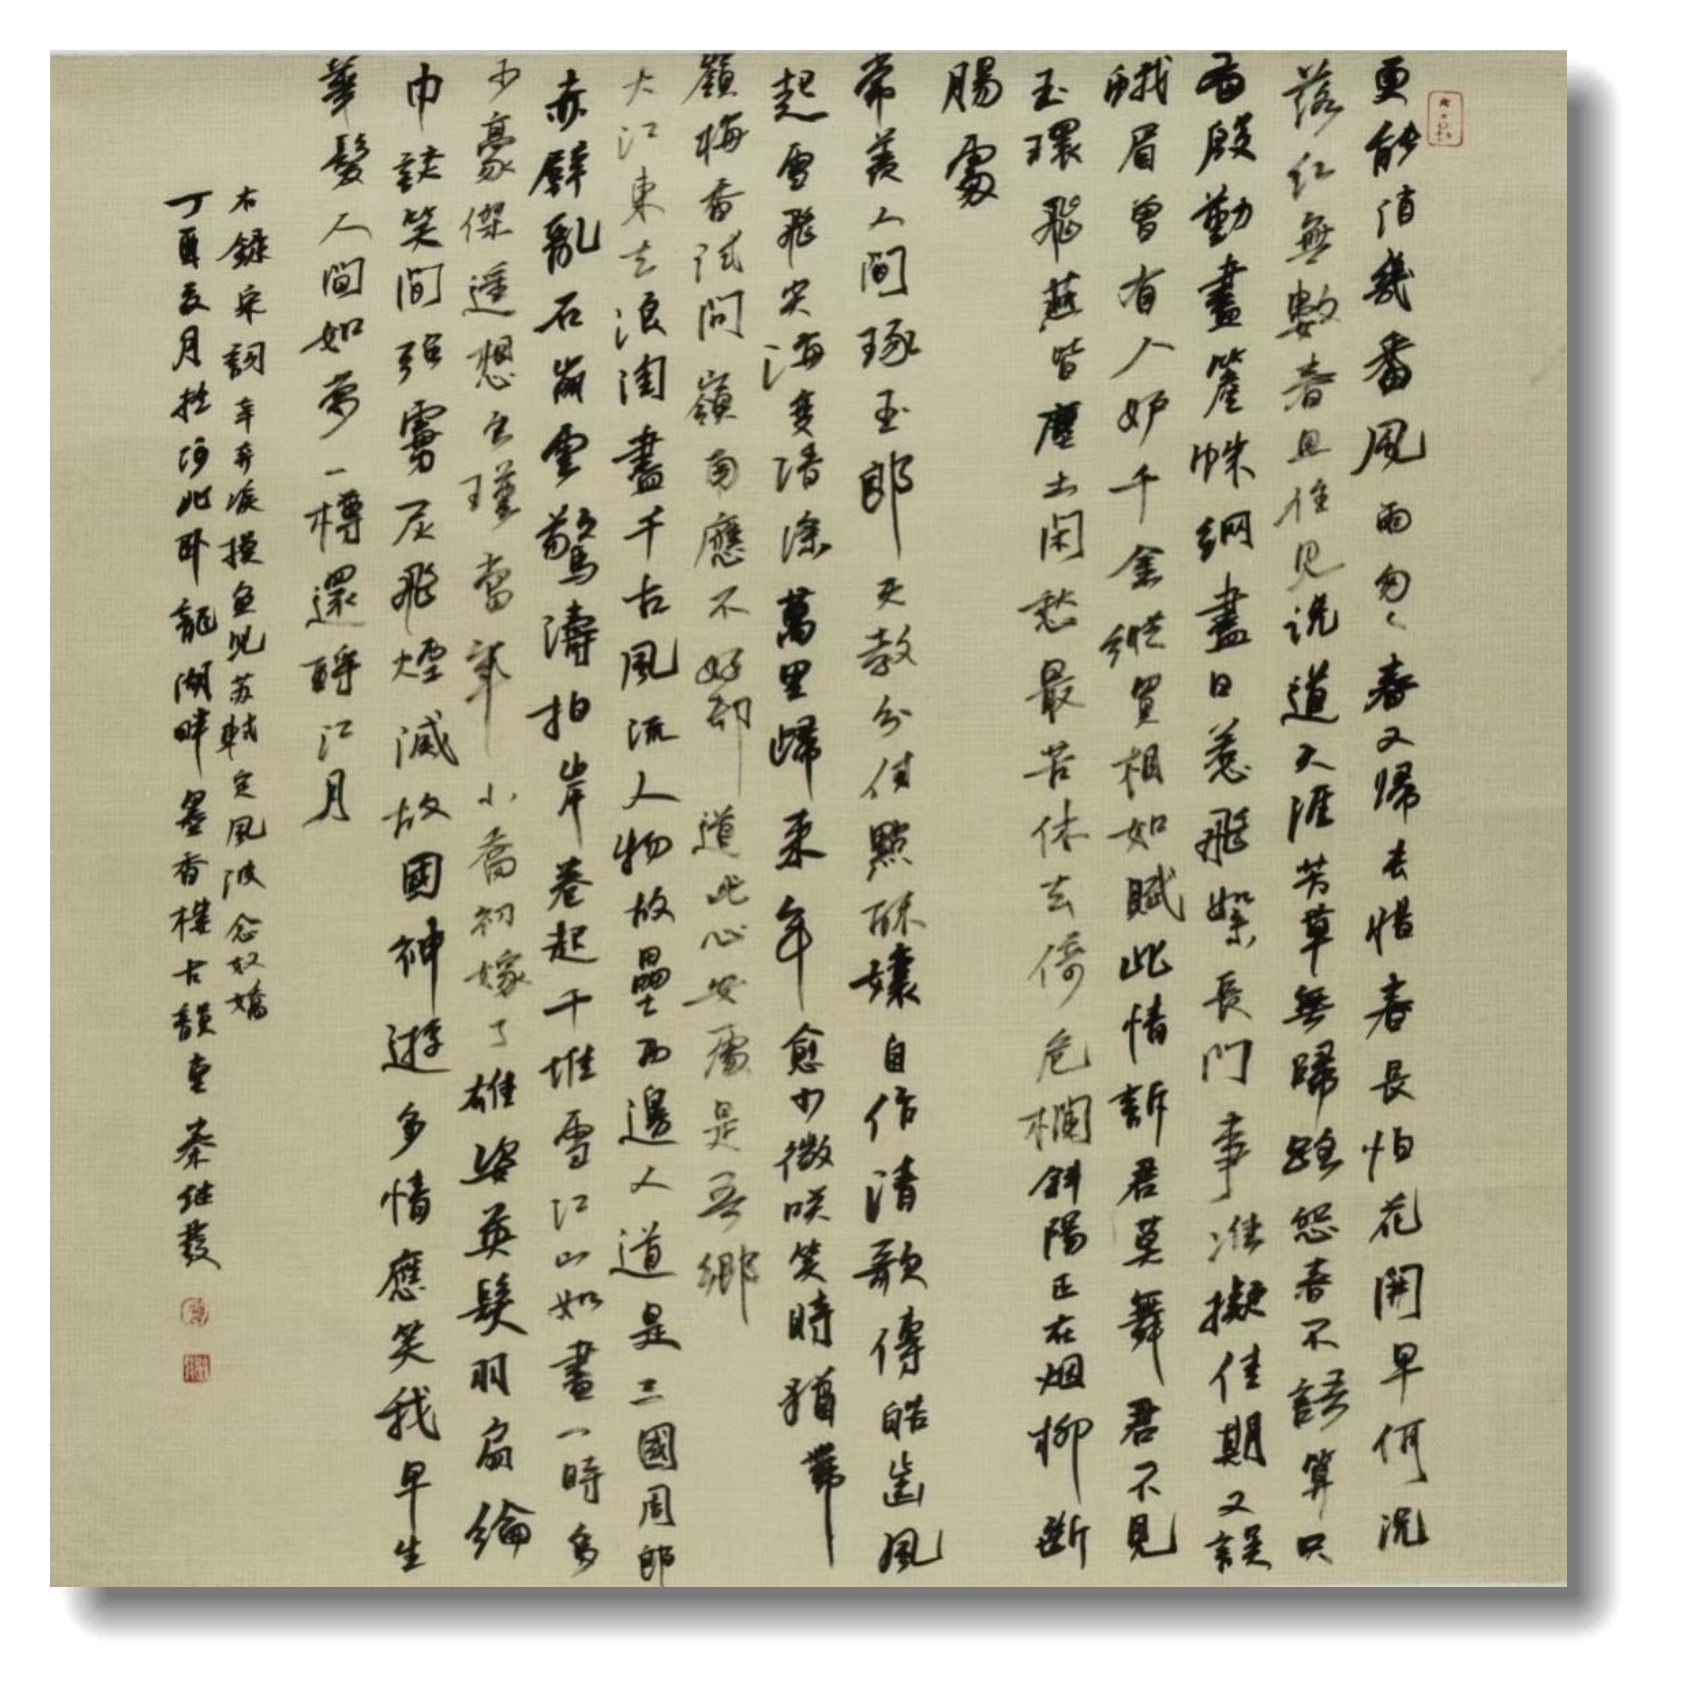 更能消幾番風雨匆匆春又歸去惜春長怕花開早何況
落紅無數春且住見說道天涯芳草無歸路怨春不語算只
有殷勤畫簷蛛網盡日惹飛絮長門事準擬佳期又誤
蛾眉曾有人妒千金縱買相如賦此情訴君莫舞君不見
玉環飛燕皆塵土閑愁最苦休去倚危欄斜陽正在烟柳斷
腸處
常羨人間琢玉郎天教分付點酥孃自作清歌傳皓齒風
起雪飛炎海變清涼萬里歸來年愈少微咲笑時猶帶
嶺梅香試問嶺南應不好卻道此心安處是吾鄉
大江東去浪淘盡千古風流人物故壘西邊人道是三國周郎
赤壁亂石崩雲驚濤拍岸卷起千堆雪江山如畫一時多
少豪傑遥想公瑾當年小喬初嫁了雄姿英髮羽扇綸
巾談笑間強虜灰飛煙滅故國神遊多情應笑我早生
華髮人間如夢一樽還酹江月
右錄宋詞辛弃疾摸魚兒苏軾定風波念奴嬌
丁酉夏月於河北卧龍湖畔墨香樓古韻堂秦继發